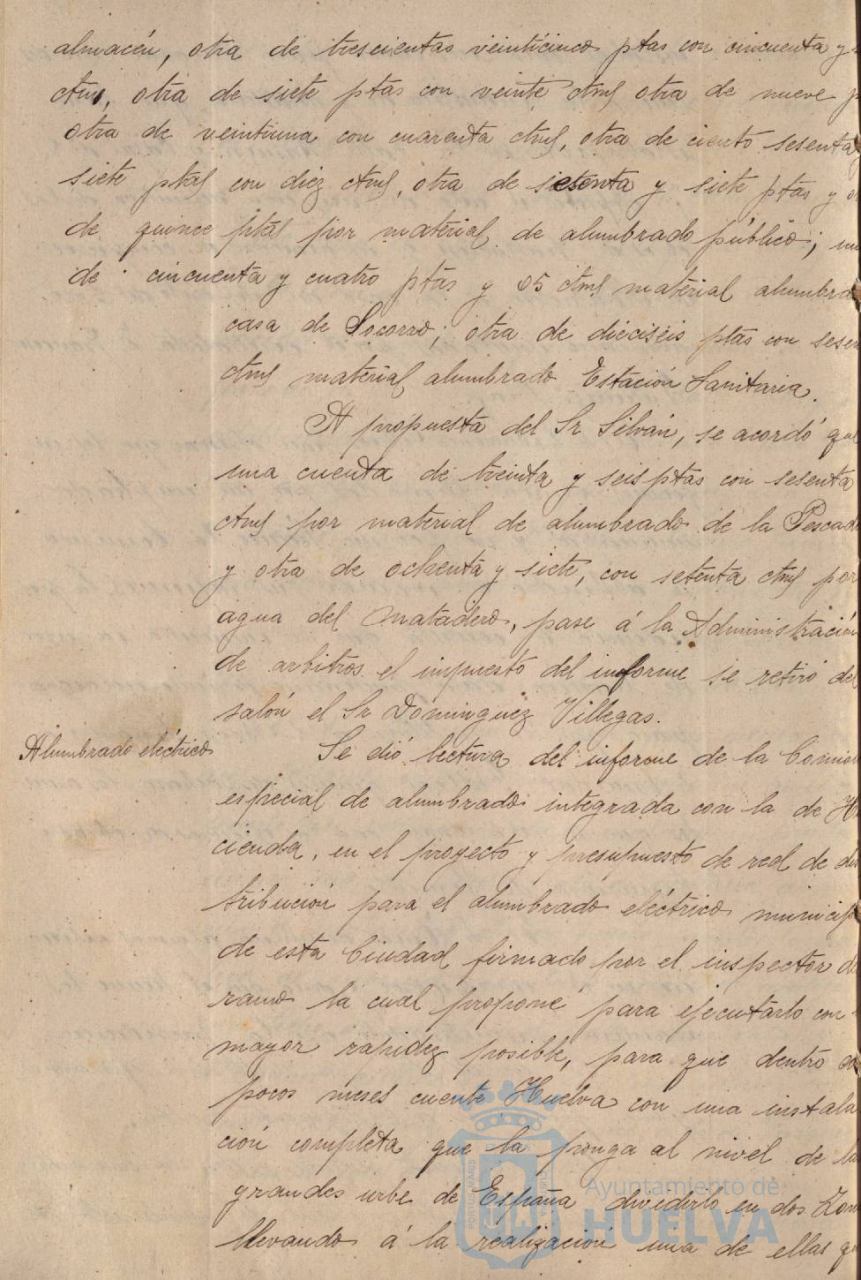 almacén, otra de trescientas veinticinco ptas con cincuenta y
ctms, otra de siete ptas con veinte ctms otra de nueve p
otra de veintiuna con cuarenta ctms, otra de ciento sesenta y
siete ptas con diez ctms, otra de sesenta y siete ptas y o
de quince ptas por material de alumbrado público; un
de cincuenta y cuatro ptas y 05 ctms material alumbra
casa de Socorro; otra de dieciséis ptas con sesen
ctms material alumbrado Estación Sanitaria.
A propuesta del Sr Silván, se acordó que
una cuenta de treinta y seis ptas con sesenta
ctms por material de alumbrado de la Pescade
y otra de ochenta y siete, con setenta ctms por
agua del matadero, pase á la Administración
de arbitros el impuesto del informe se retiró del
salón el Sr Dominguez Villegas.
Alumbrado eléctrico
Se dió lectura del informe de la Comisi
especial de alumbrado integrada con la de Ha
cienda, en el proyecto y presupuesto de red de dis
tribución para el alumbrado eléctrico municip
de esta Ciudad firmado por el inspector de
ramo la cual propone para ejecutarlo con
mayor rapidez posible, para que dentro de
pocos meses cuente Huelva con una instala
ción completa que la ponga al nivel de la
grandes urbe de España dividirlo en dos Zon
llevando á la realización una de ellas q
Ayuntamiento de
HUELVA